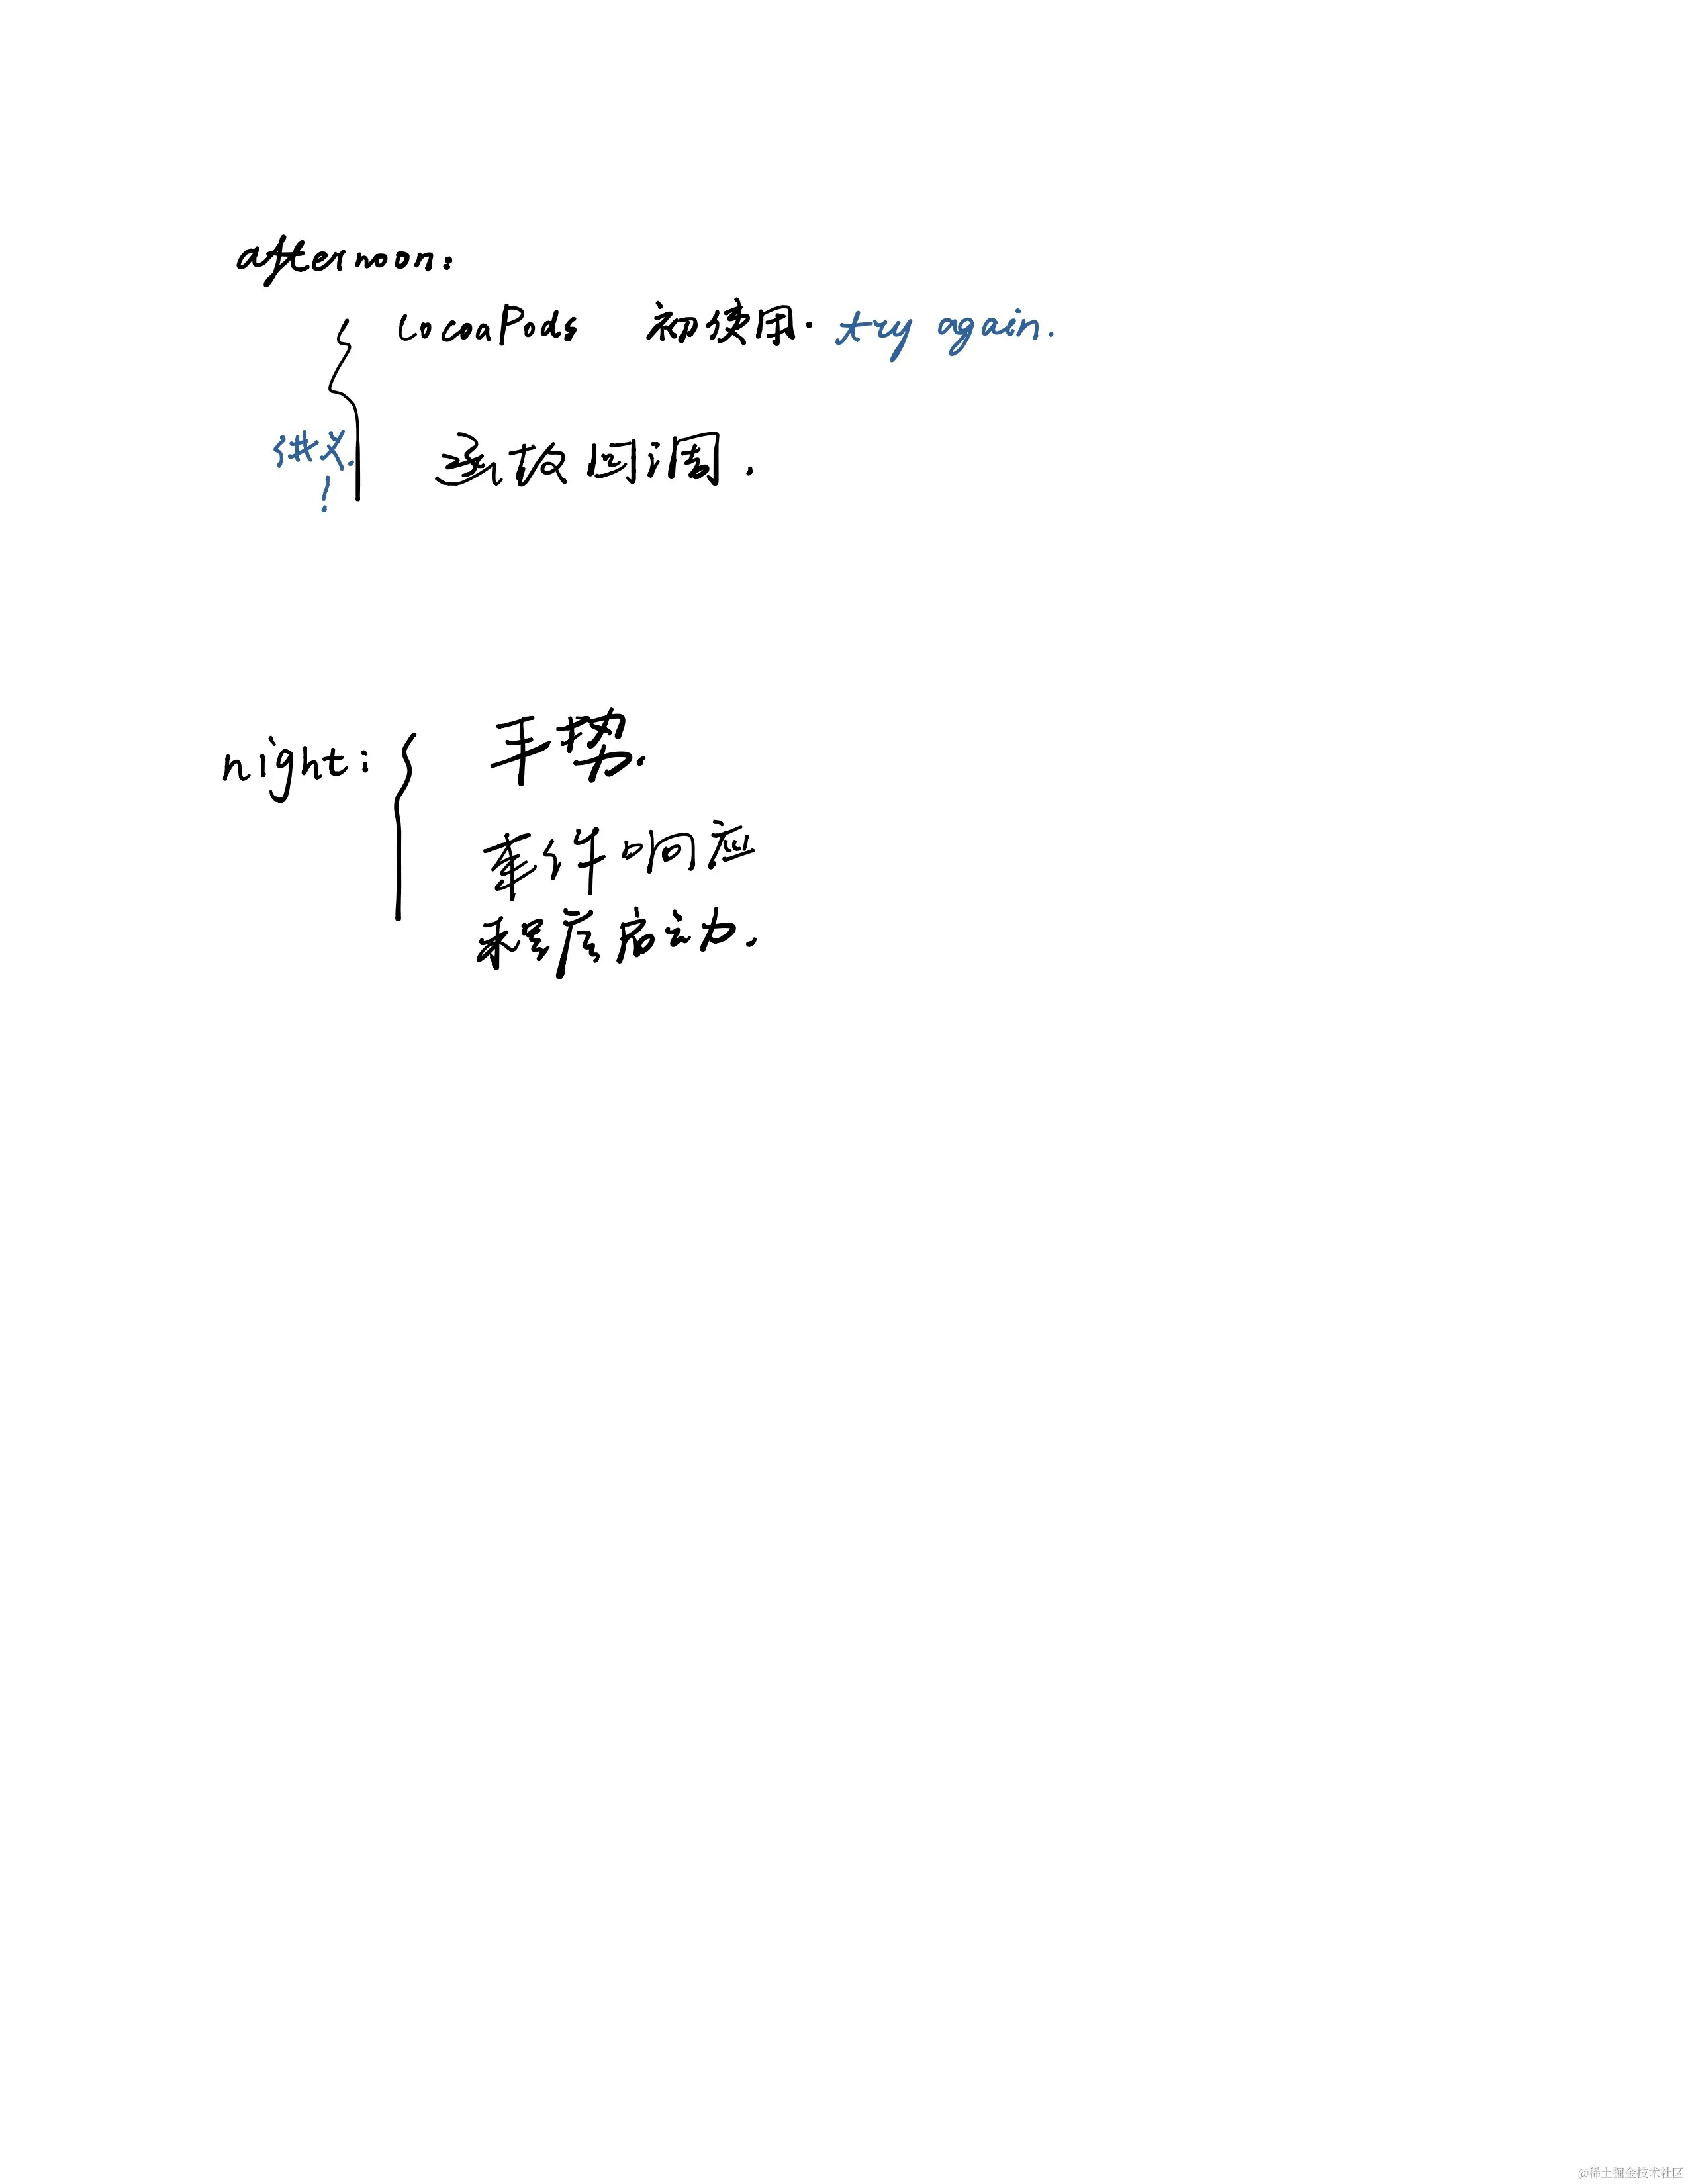 afternoon:
CocoaPods 初使用. try again.
函数回调.
night:
手势.
事件响应
程序启动.
@稀土掘金技术社区